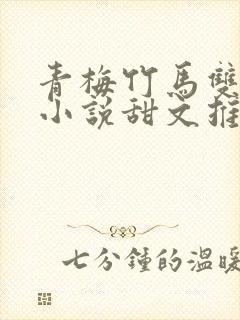 青梅竹馬雙
小說甜文推
七分鍾的溫暖